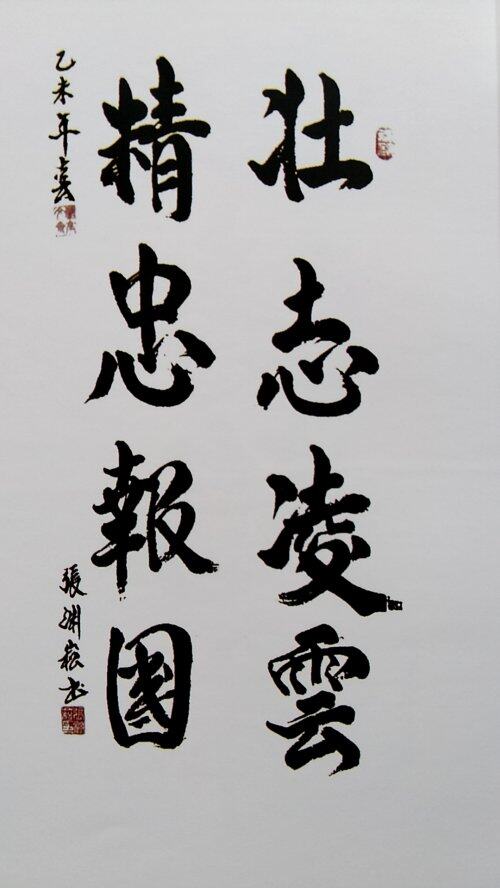 壯志凌雲
精忠報國
乙未年
張淵崧書